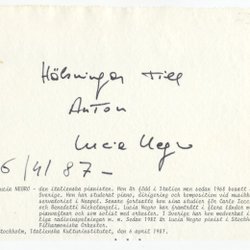 Hälsningar till
Anton
Lucia Negro
6/4/87-
Lucia NEGRO - den italienska pianisten. Hon är född i Italien men sedan 1968 bosatt
Hon har studerat piano, dirigering och komposition vid musik
servatoriet i Neapel. Senare fortsatte hon sina studier för Carlo Zecc
och Benedetti Michelangeli. Lucia Negro har framträtt i flera länder
pianoafton och som solist med orkester. I Sverige har hon medverkat i
liga radioinspelningar m m. Sedan 1982 är Lucia Negro pianist i Stockh
Filharmoniska Orkester.
Stockholm, Italienska Kulturinstitutet, den 6 april 1987.